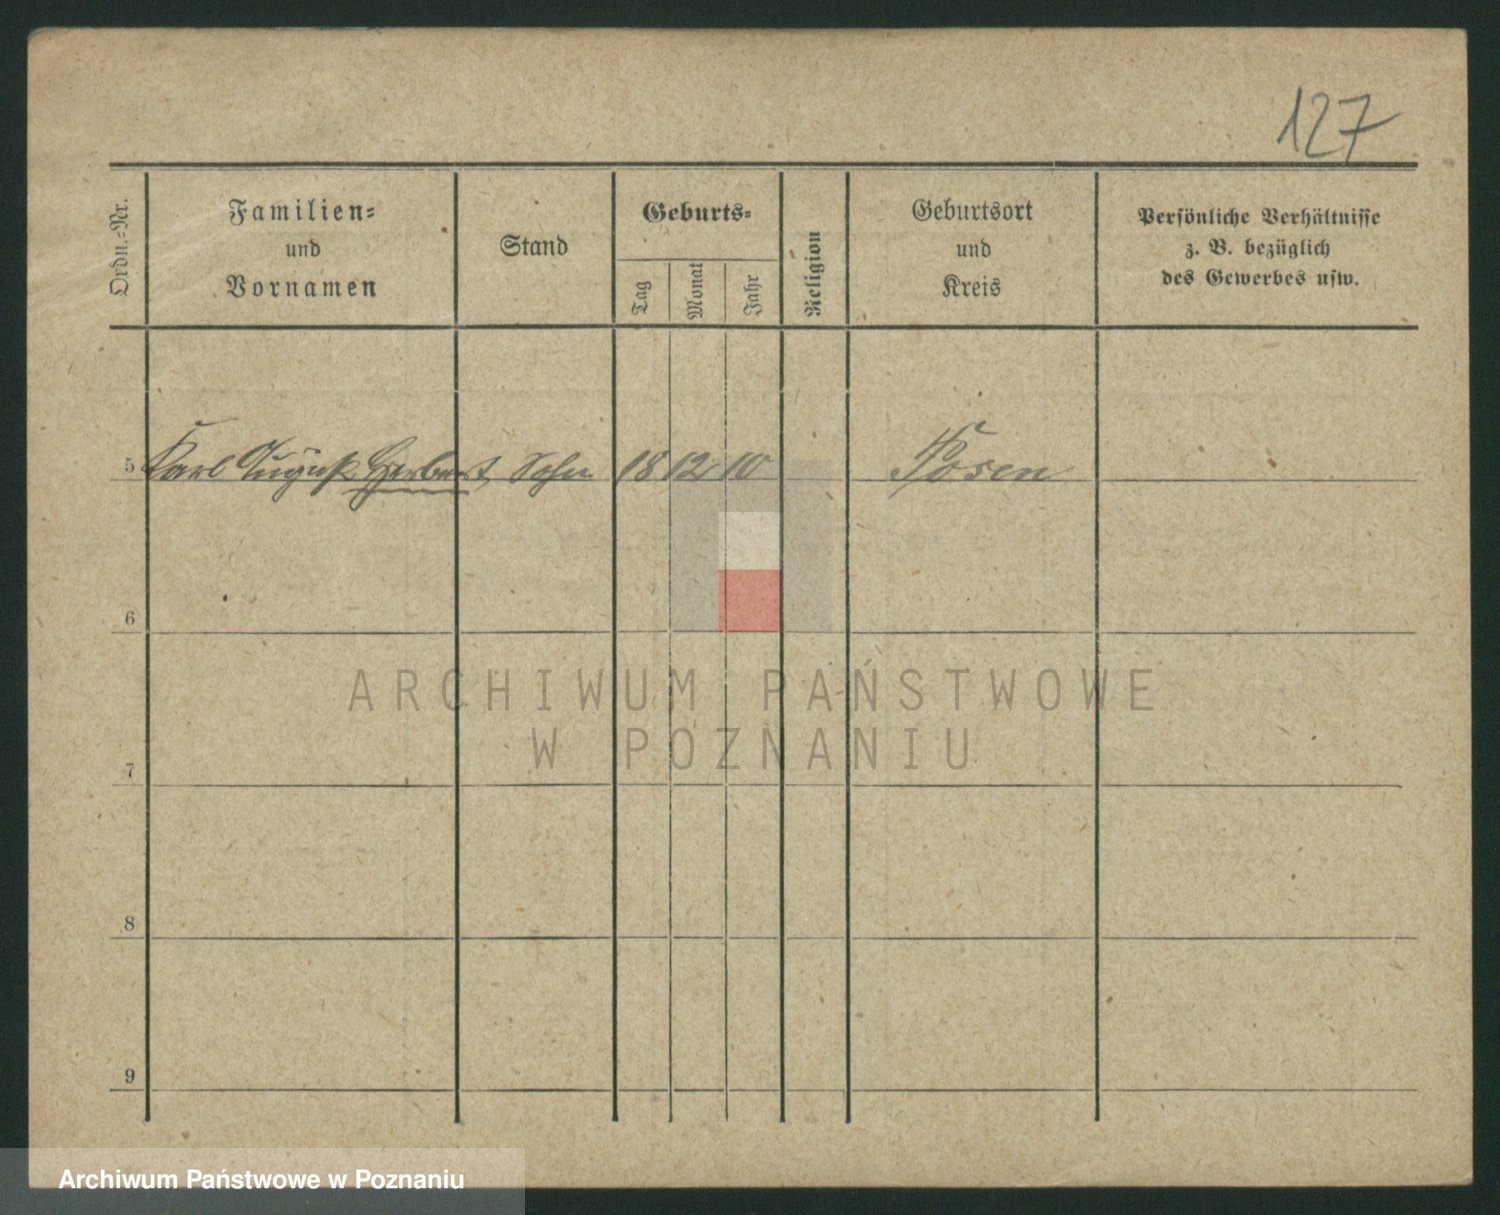 127
Ordn.-Nr.
Familien-
und
Vornamen
Stand
Geburts-
Tag
Monat
Jahr
Religion
Geburtsort
und
Kreis
Persönliche Verhältnisse
z. B. bezüglich
des Gewerbes usw.
5 Karl August Herbert Sohn 18 12 10 Posen
6
ARCHIWUM PAŃSTWOWE
W POZNANIU
7
8
9
Archiwum Państwowe w Poznaniu